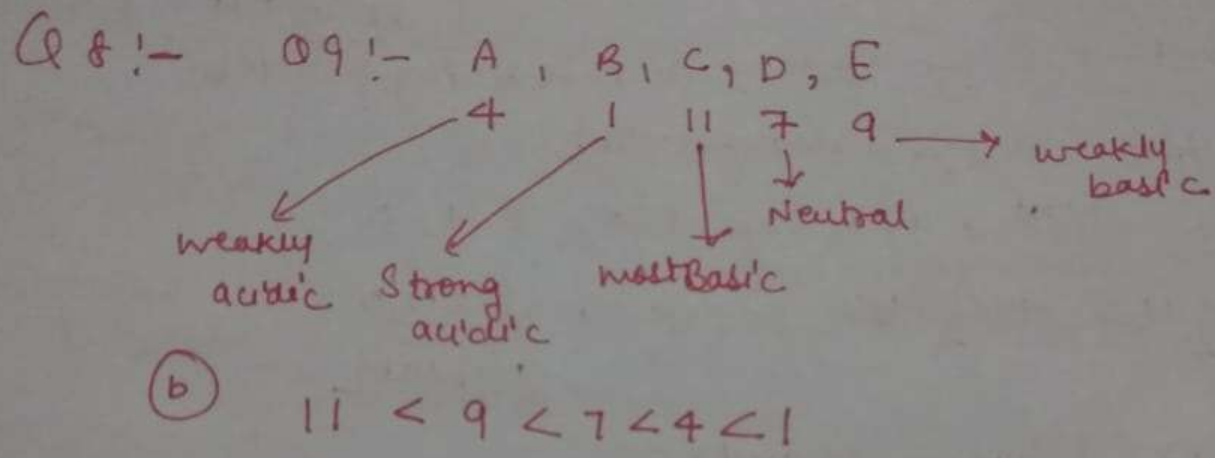 Q8:- Q9:- A, B, C, D, E
4 1 11 7 9
weakly basic
Neutral
weakly acidic
Strong acidic
most Basic
(b) 11 < 9 < 7 < 4 < 1